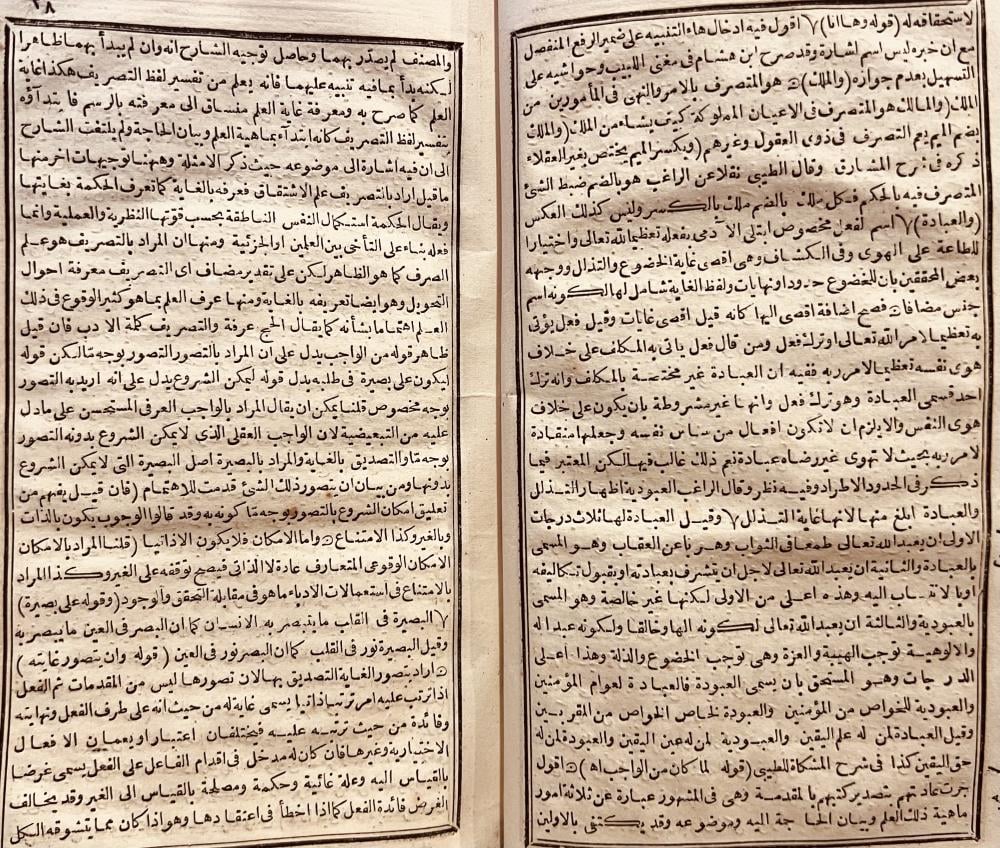 لاستحقاقه له (قوله وها انا) ٧ اقول فيه ادخال هاء التنبيه على ضمير الرفع المنفصل
مع ان خبره ليس اسم اشارة وقد صرح ابن هشام فى مغنى اللبيب وحواشيه على
التسهيل بعدم جوازه (والملك) هو المتصرف بالامر والنهى فى المأمورين من
الملك (والمالك هو المتصرف فى الاعيان المملوكة كيف يشاء من الملك (والملك
بضم الميم يعم التصرف فى ذوى العقول وغيرهم (وبكسر الميم يختص بغير العقلاء
ذكره فى شرح المشارق وقال الطيبى نقلا عن الراغب هو بالضم ضبط الشئ
المتصرف فيه بالحكم فكل ملك بالضم ملك بالكسر وليس كذلك العكس
(والعبادة) ٧ اسم لفعل مخصوص ابتلى الآدمى بفعله تعظيما لله تعالى واختيارا
للطاعة على الهوى وفى الكشاف وهى اقصى غاية الخضوع والتذلل ووجهه
بعض المحققين بان للخضوع حدودا ونهايات ولفظ الغاية شامل لها لكونه اسم
جنس مضافا فصح اضافة اقصى اليها كانه قيل اقصى غايات وقيل فعل يؤتى
به تعظيما لامر الله تعالى او ترك فعل ومن قال فعل ياتى به المكلف على خلاف
هوى نفسه تعظيما لامر ربه ففيه ان العبادة غير مختصة بالمكلف وانه ترك
احد قسمى العبادة وهو ترك فعل وانها غير مشروطة بان يكون على خلاف
هوى النفس والا يلزم ان لا تكون افعال من نفسه وجعلها منقادة
لامر ربه بحيث لا تهوى غير رضاه عبادة نعم ذلك غالب فيها لكن المعتبر فيما
ذكر فى الحدود الاطراد وفيه نظر وقال الراغب العبودية اظهار التذلل
والعبادة ابلغ منها لانها غاية التذلل ٧ وقيل العبادة لها ثلاث درجات
الاولى ان يعبد الله تعالى طمعا فى الثواب وهربا عن العقاب وهو المسمى
بالعبادة والثانية ان يعبد الله تعالى لاجل ان يتشرف بعبادته او بقبول تكاليفه
او بالانتساب اليه وهذه اعلى من الاولى لكنها غير خالصة وهو المسمى
بالعبودية والثالثة ان يعبد الله تعالى لكونه الها وخالقا ولكونه عبدا له
والالوهية توجب الهيبة والعزة وهى توجب الخضوع والذلة وهذا اعلى
الدرجات وهو المستحق بان يسمى العبودة فالعبادة لعوام المؤمنين
والعبودية للخواص من المؤمنين والعبودة لخاص الخواص من المقربين
وقيل العبادة لمن له علم اليقين والعبودية لمن له عين اليقين والعبودة لمن له
حق اليقين كذا فى شرح المشكاة للطيبى (قوله لما كان من الواجب اه) اقول
جرت عادتهم بتصدير كتبهم بالمقدمة وهى فى المشهور عبارة عن ثلاثة امور
ماهية ذلك العلم وبيان الحاجة اليه وموضوعه وقد يكتفى بالاولين
٢٨
والمصنف لم يصدّر بهما وحاصل توجيه الشارح انه وان لم يبدأ بهما ظاهرا
لكنه بدأ بما فيه تنبيه عليهما فانه يعلم من تفسير لفظ التصريف هكذا غاية
العلم كما صرح به ومعرفة غاية العلم منساق الى معرفته بالرسم فابتدآؤه
بتفسير لفظ التصريف كانه ابتدآء بماهية العلم وبيان الحاجة ولم يلتفت الشارح
الى ان فيه اشارة الى موضوعه حيث ذكر الامثله وههنا توجيهات اخر منها
ما قيل اراد بالتصريف علم الاشتقاق فعرفه بالغاية كما تعرف الحكمة بغايتها
ويقال الحكمة استكمال النفس الناطقة بحسب قوتها النظرية والعملية وانما
فعله بناء على التأخى بين العلمين او الجزئية ومنها ان المراد بالتصريف هو علم
الصرف كما هو الظاهر لكن على تقدير مضاف اى التصريف معرفة احوال
التحويل وهو ايضا تعريفه بالغاية ومنها عرف العلم بما هو كثير الوقوع فى ذلك
العلم اهتماما بشأنه كما يقال الحج عرفة والتصريف كلمة الادب فان قيل
ظاهر قوله من الواجب يدل على ان المراد بالتصور التصور بوجه ما لكن قوله
ليكون على بصيرة فى طلبه بدل قوله ليمكن الشروع يدل على انه اريد به التصور
بوجه مخصوص قلنا يمكن ان يقال المراد بالواجب العرفى المستحسن على ما دل
عليه من التبعيضية لان الواجب العقلى الذى لا يمكن الشروع بدونه التصور
بوجه ما والتصديق بالغاية والمراد بالبصيرة اصل البصيرة التى لا يمكن الشروع
بدونها ومن بيان ان يتصور ذلك الشئ قدمت للاهتمام (فان قيل يفهم من
تعليق امكان الشروع بالتصور بوجه مّا كونه به وقد قالوا الوجوب يكون بالذات
وبالغير وكذا الامتناع واما الامكان فلا يكون الا ذاتيا (قلنا المراد بالامكان
الامكان الوقوعى المتعارف عادة لا الذاتى فيصح توقفه على الغير وكذا المراد
بالامتناع فى استعمالات الادباء ما هو فى مقابلة التحقق والوجود (وقوله على بصيرة)
٧ البصيرة فى القلب ما يتبصر به الانسان كما ان البصر فى العين ما يبصر به
وقيل البصيرة نور فى القلب كما ان البصر نور فى العين (قوله وان يتصور غايته)
اراد بتصور الغاية التصديق بها لان تصورها ليس من المقدمات ثم الفعل
اذا ترتب عليه امر ترتبا ذاتيا يسمى غاية له من حيث انه على طرف الفعل ونهايته
وفائدة من حيث ترتبه عليه فيختلفان اعتبارا ويعمان الافعال
الاختيارية وغيرها فان كان له مدخل فى اقدام الفاعل على الفعل يسمى غرضا
بالقياس اليه وعلة غائية وحكمة ومصلحة بالقياس الى الغير وقد يخالف
الغرض فائدة الفعل كما اذا اخطأ فى اعتقادها وهو اذا كان مما يتشوقه الكل